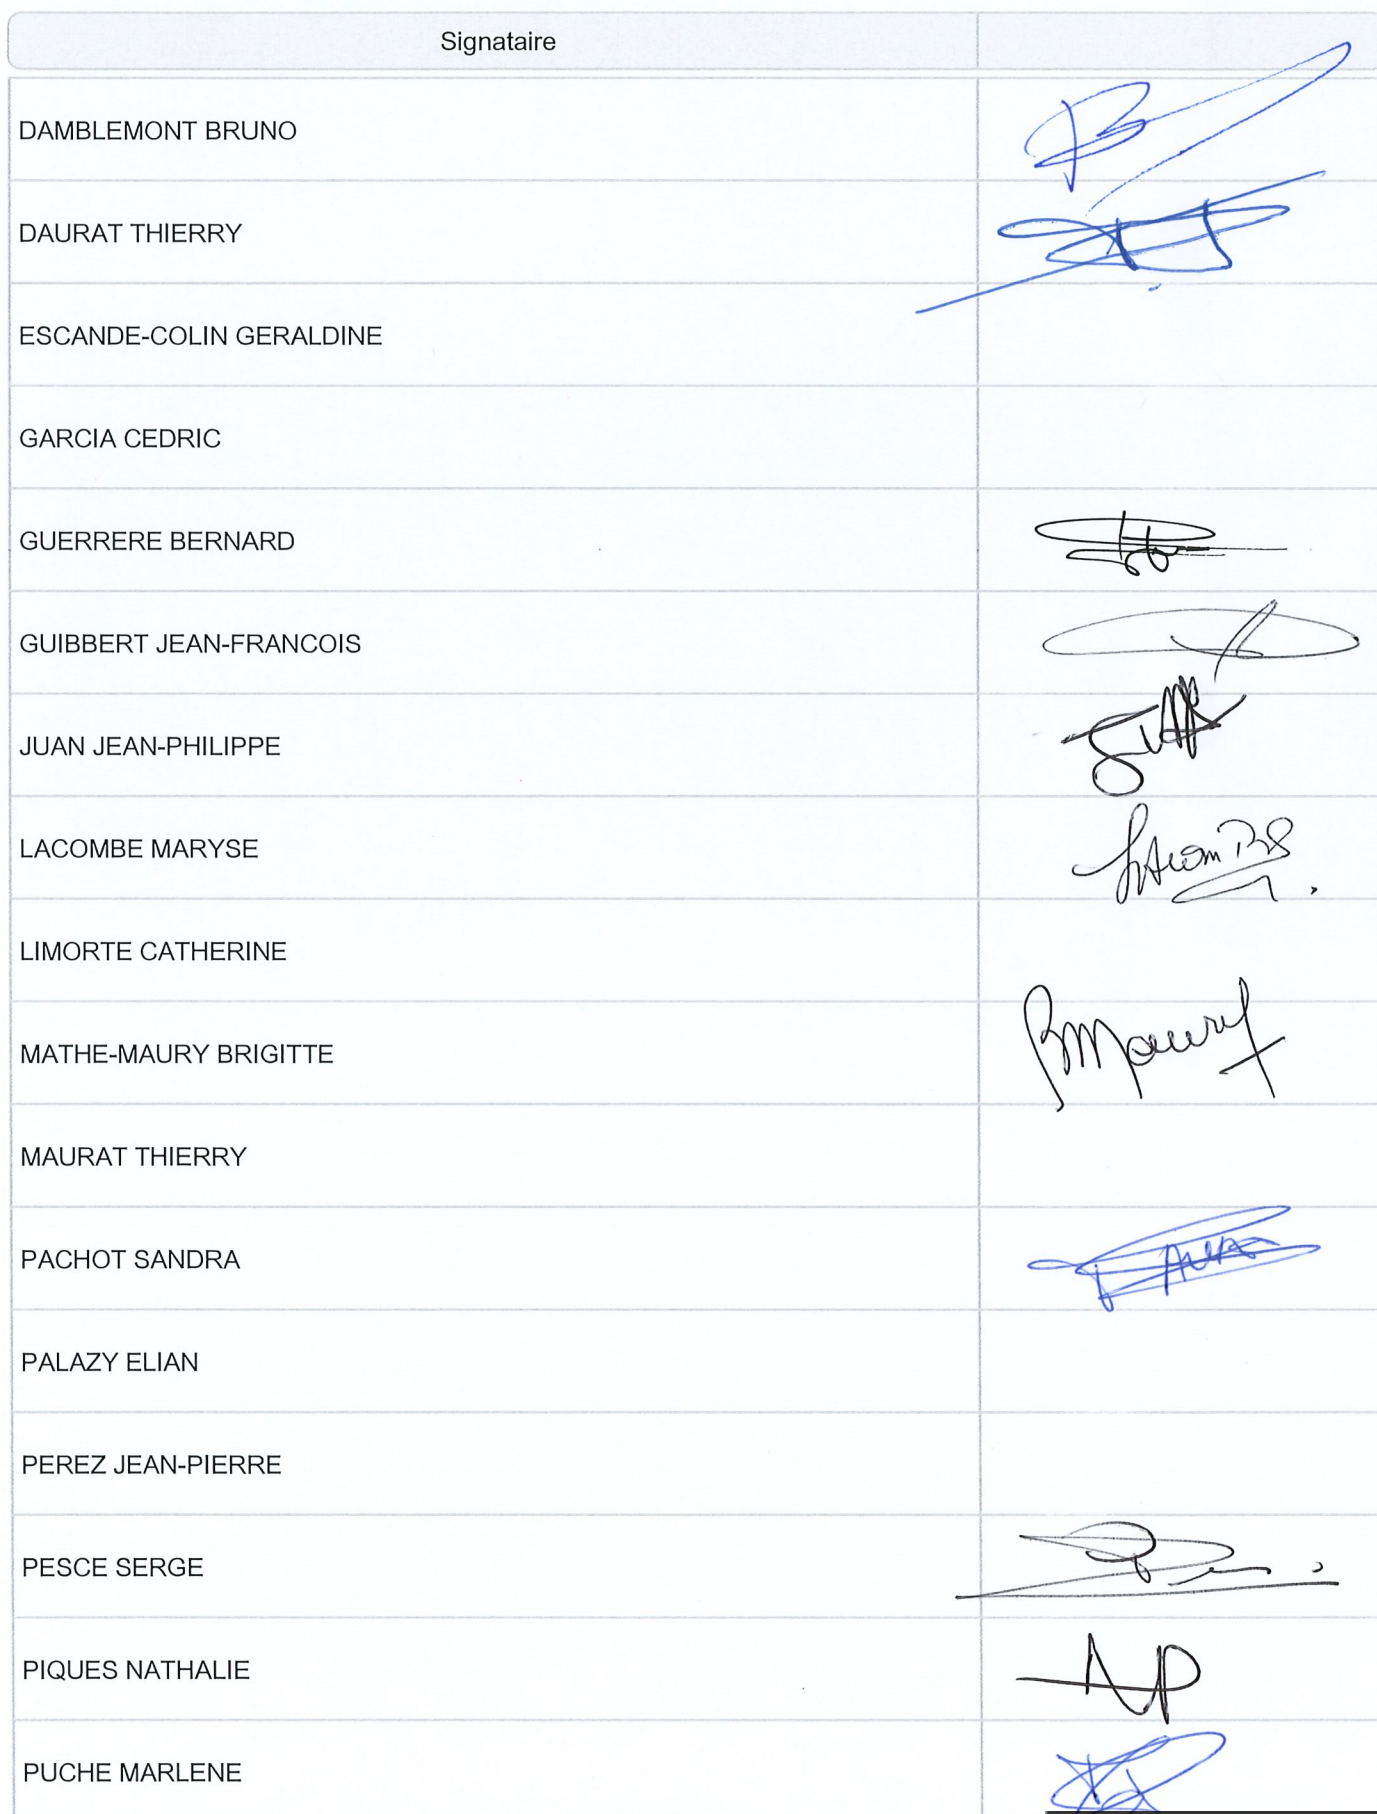 Signataire
DAMBLEMONT BRUNO
DAURAT THIERRY
ESCANDE-COLIN GERALDINE
GARCIA CEDRIC
GUERRERE BERNARD
GUIBBERT JEAN-FRANCOIS
JUAN JEAN-PHILIPPE
LACOMBE MARYSE
LIMORTE CATHERINE
MATHE-MAURY BRIGITTE
BMMaury
MAURAT THIERRY
PACHOT SANDRA
PALAZY ELIAN
PEREZ JEAN-PIERRE
PESCE SERGE
PIQUES NATHALIE
NP
PUCHE MARLENE